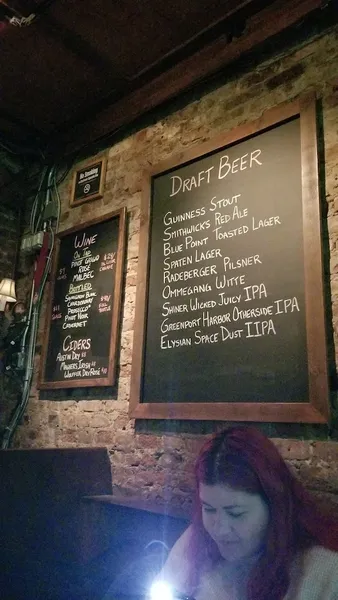 No Smoking
Wine
On Tap
Pinot Grigio
Rosé
Malbec
Bottled
Sauvignon Blanc
Chardonnay
Prosecco
Pinot Noir
Cabernet
Ciders
Austin Dry
Draft Beer
Guinness Stout
Smithwick's Red Ale
Blue Point Toasted Lager
Spaten Lager
Radeberger Pilsner
Ommegang Witte
Shiner Wicked Juicy IPA
Greenport Harbor Otherside IPA
Elysian Space Dust IIPA